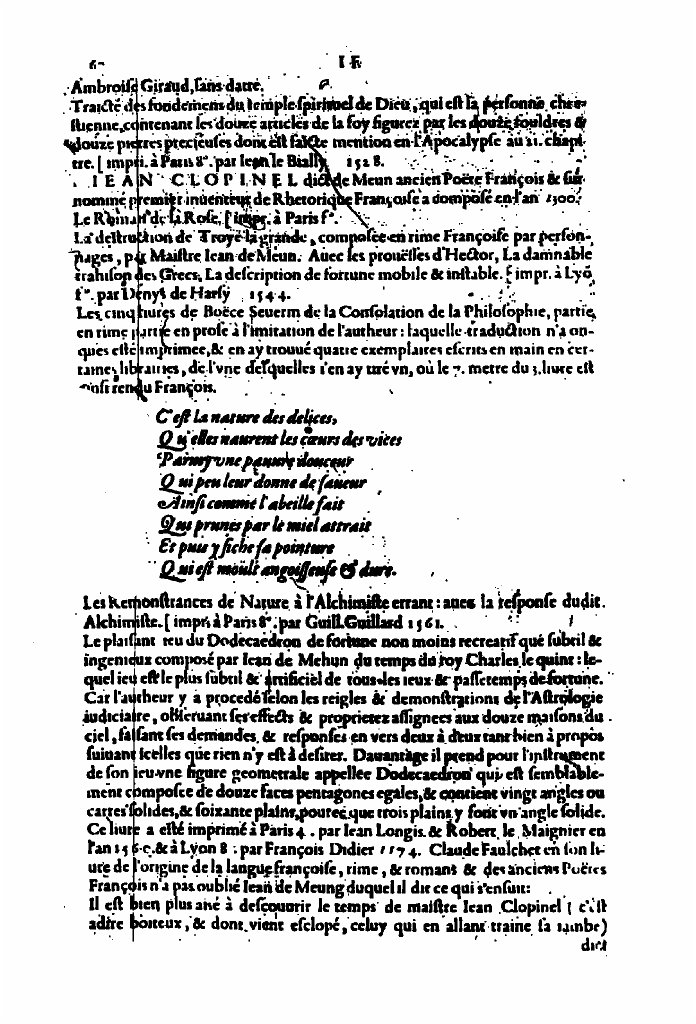 I E
Ambroise Giraud, sans datte.
Traicté des fondemens du temple spirituel de Dieu, qui est la personne chre-
stienne, contenant les douze articles de la foy figurez par les douze fouldres &
douze pierres precieuses dont est faicte mention en l'Apocalypse au 21. chapi-
tre. [ impri. à Paris 8°. par Iean le Bially 1528.
IEAN CLOPINEL dict de Meun ancien Poëte François & sur-
nommé premier inuenteur de Rhetorique Françoise a composé en l'an 1300.
Le Roman de la Rose. [ impr. à Paris f°.
La destruction de Troye la grande, composee en rime Françoise par person-
nages, par Maistre Iean de Meun. Auec les prouësses d'Hector, La damnable
trahison des Grecs, La description de fortune mobile & instable. [ impr. à Lyõ
f°. par Denys de Harsy 1544.
Les cinq liures de Boëce Seuerin de la Consolation de la Philosophie, partie
en rime partie en prose à l'imitation de l'autheur : laquelle traduction n'a on-
ques esté imprimee, & en ay trouué quatre exemplaires escrits en main en cer-
taines librairies, de l'vne desquelles i'en ay tiré vn, où le 7. metre du 3. liure est
ainsi rendu François.
C'est la nature des delices,
Qu'elles naurent les cœurs des vices
Parmy vne pauure douceur
Qui peu leur donne de faueur
Ainsi comme l'abeille fait
Qui prunes par le miel attrait
Et puis y fiche sa pointure
Qui est moult angoisseuse & dure.
Les Remonstrances de Nature à l'Alchimiste errant : auec la response dudit
Alchimiste. [ impr. à Paris 8°. par Guill. Guillard 1561.
Le plaisant ieu du Dodecaedron de fortune non moins recreatif que subtil &
ingenieux composé par Iean de Mehun du temps du roy Charles le quint : le-
quel ieu est le plus subtil & artificiel de tous les ieux & passetemps de fortune.
Car l'autheur y a procedé selon les reigles & demonstrations de l'Astrologie
iudiciaire, obseruant ses effects & proprietez assignees aux douze maisons du
ciel, faisant ses demandes, & responses en vers deux à deux tant bien à propos
suiuant icelles que rien n'y est à desirer. Dauantage il prend pour l'instrument
de son ieu vne figure geometrale appellee Dodecaedron qui est semblable-
ment composee de douze faces pentagones egales, & contient vingt angles ou
carres solides, & soixante plains, pource que trois plains y font vn angle solide.
Ce liure a esté imprimé à Paris 4. par Iean Longis & Robert le Maignier en
l'an 1560. & à Lyon 8°. par François Didier 1574. Claude Faulchet en son li-
ure de l'origine de la langue françoise, rime, & romans & des anciens Poëtes
François n'a pas oublié Iean de Meung duquel il dit ce qui s'ensuit:
Il est bien plus aisé à descouurir le temps de maistre Iean Clopinel ( c'est
adire boiteux, & dont vient esclopé, celuy qui en allant traine sa iambe)
dict